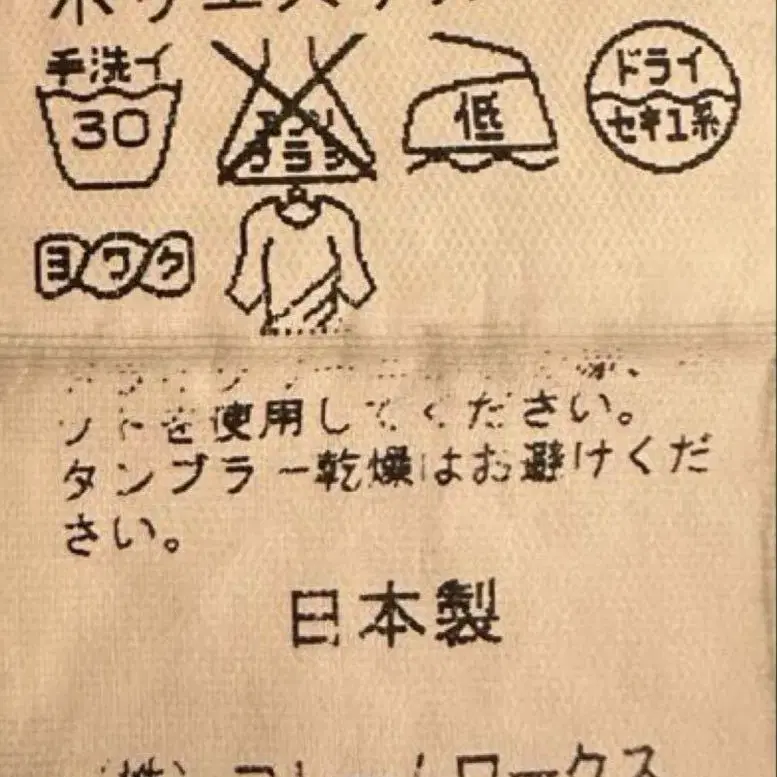 ポリエステル
手洗イ
30
エンソ
サラシ
低
ドライ
セキユ系
ヨワク
ットを使用してください。
タンブラー乾燥はお避けくだ
さい。
日本製
(株)
ワークス